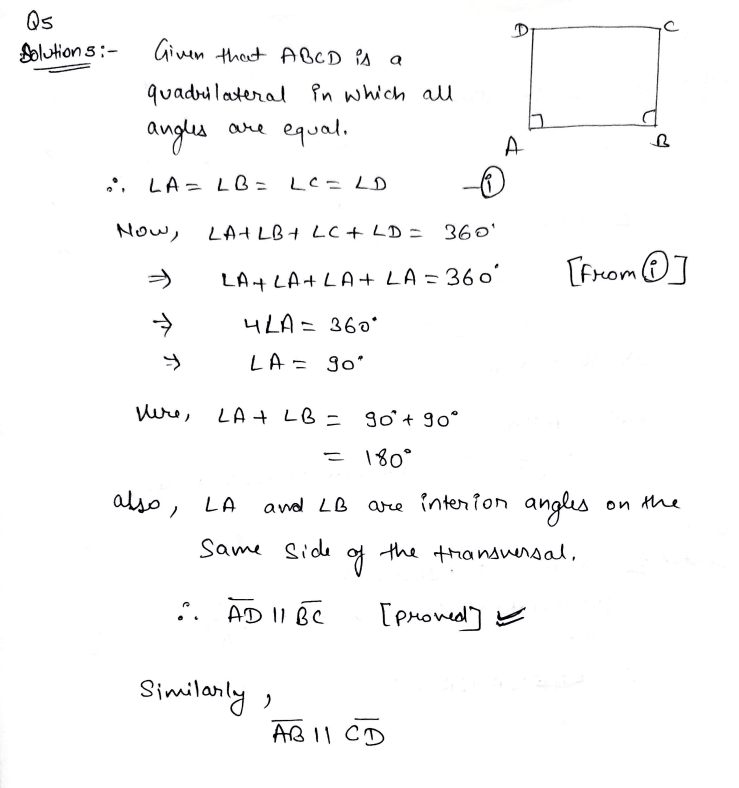 Q5
Solution 5:- Given that ABCD is a
quadrilateral in which all
angles are equal.
D C
A B
∴ ∠A = ∠B = ∠C = ∠D —(i)
Now, ∠A + ∠B + ∠C + ∠D = 360°
⇒ ∠A + ∠A + ∠A + ∠A = 360° [From (i)]
⇒ 4∠A = 360°
⇒ ∠A = 90°
Here, ∠A + ∠B = 90° + 90°
= 180°
also, ∠A and ∠B are interior angles on the
Same Side of the transversal.
∴ A̅D̅ || B̅C̅ [proved]
Similarly,
A̅B̅ || C̅D̅